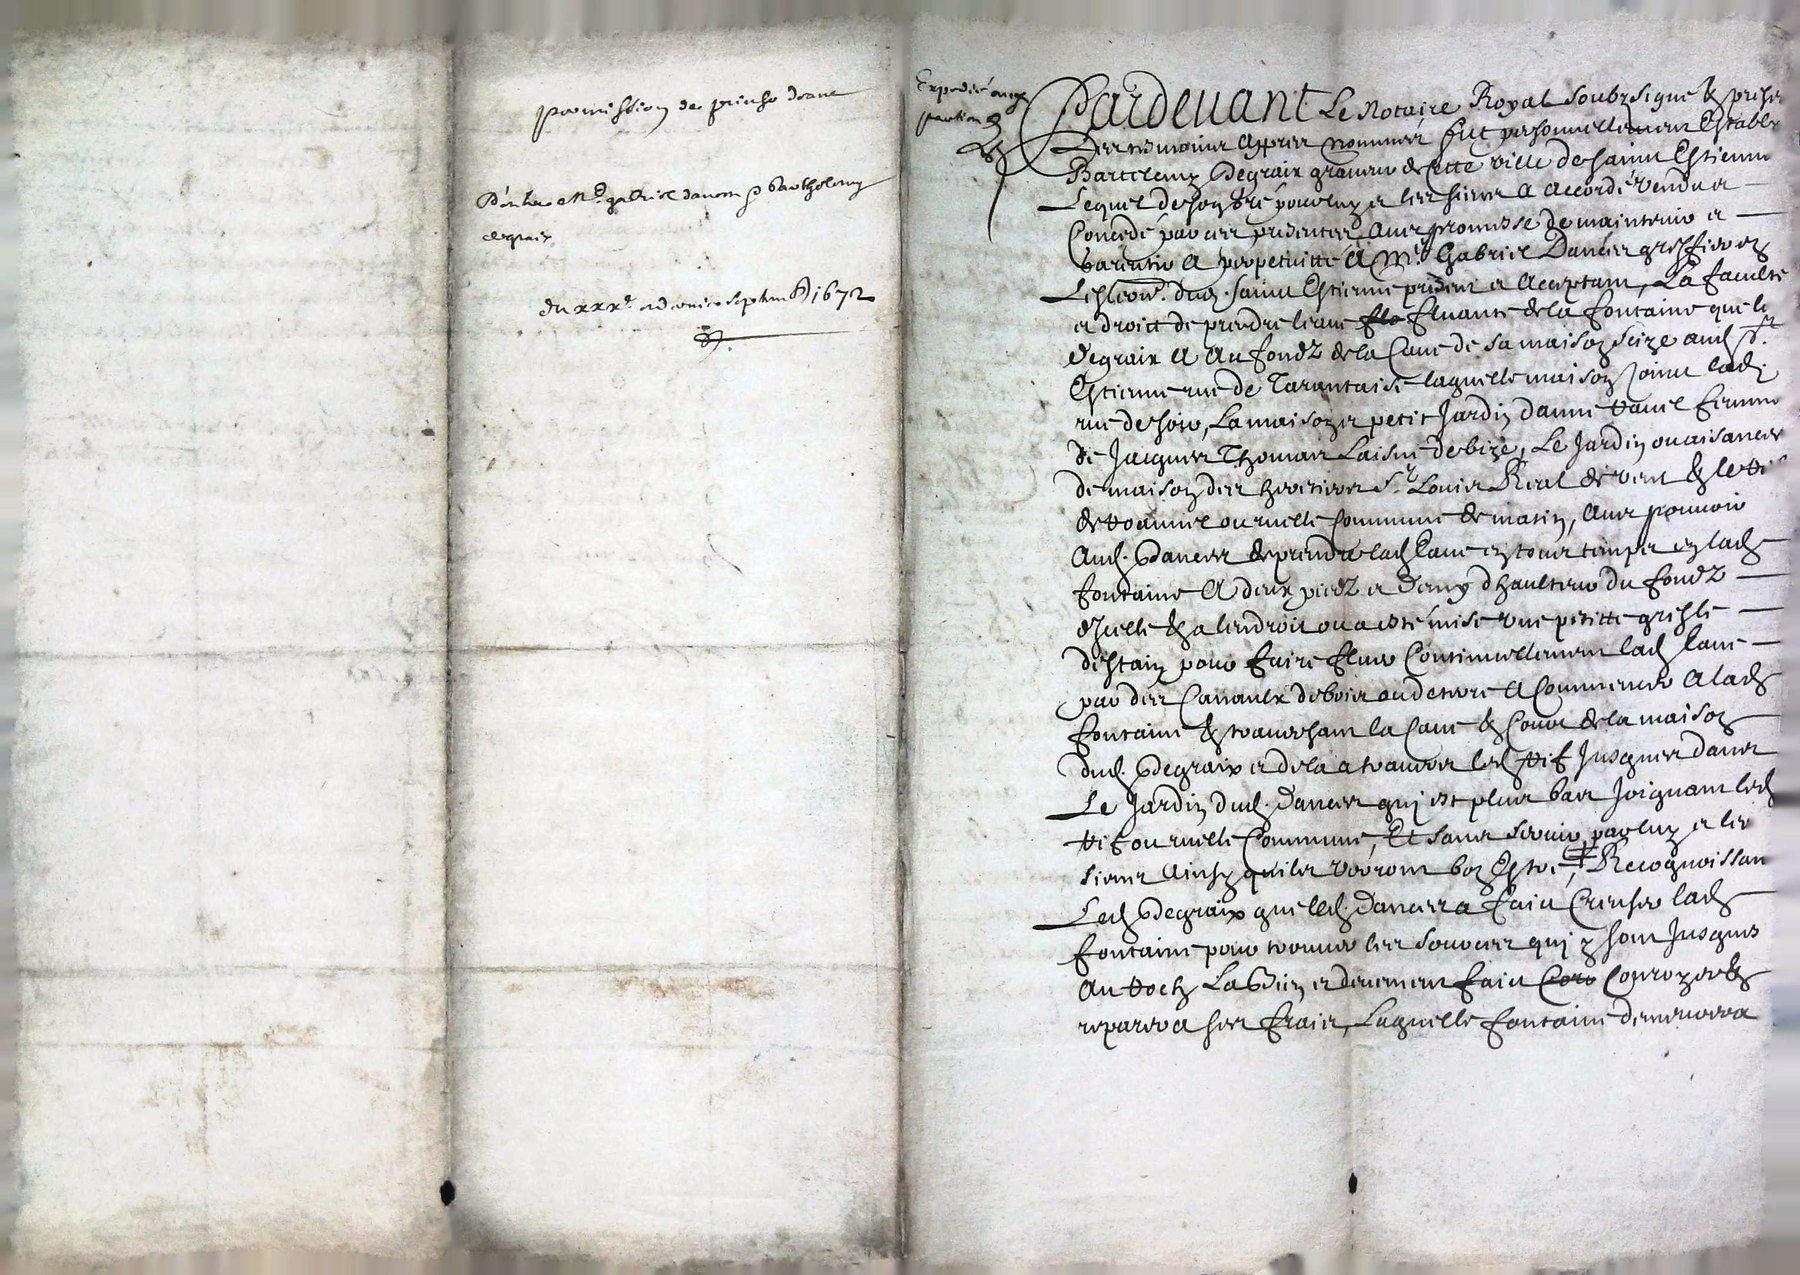 permission de prinse deaue
Mr gabriel dancer & barthelemy
degraix
du xxxe septemb 1672
Expedié aux
parties
Pardevant Le Notaire Royal soubzsigné & presen
Les tesmoins Apprez nommez fut personnellement Establi
Bartelemy Degraix graveur de cette ville de saint Estienne
Lequel de son gré pour luy et les siens a accordé vendu et
Concedé par ces presentes Avec promesse de maintenir et
garentir A perpetuitté A Mre Gabriel Dancer greffier en
Lesleon. dud. saint Estienne present et Acceptant, La faculté
et droict de prendre leaue flu fluante de la fontaine que le
degraix A Au fondz de la Cave de sa maison size aud St
Estienne rue de Tarantaise laquelle maison Joint lad.
rue de soir, La maison et petit Jardin danne femme
de Jacques Thomas Laisné de bize, Le Jardin ou aisances
de maison des heretiers Sr. Louis Real de vent & le vif
de ou ruelle Commune de matin, Avec pouvoir
Aud. Dancer de prendre lad Eaue en tous temps en lad
fontaine A deux piedz et demy dhaulteur du fondz
dicelle & a lendroit ou a esté mise une petitte grisle
destain pour faire fluer Continuellement lad Eaue
par des Canaulx de bois ou de terre A Commencer A lad
fontaine & traversant la Cave & Cour de la maison
dud. Degraix et de la a travers led vif Jusques dans
Le Jardin dud. Dancer quj est plus bas Joignant led
vif ou ruelle Commune, Et sans servir par luy et les
siens Ainsy quilz verront bon Estre, ‡ Recognoissan
Led Degraix que led. Dancer a faict Creuser lad
fontaine pour trouver les sources quj y sont Jusques
Au roch La bien et deuement faict Coro Conroyer &
reparer a ses fraiz, Laquelle fontaine demeurera